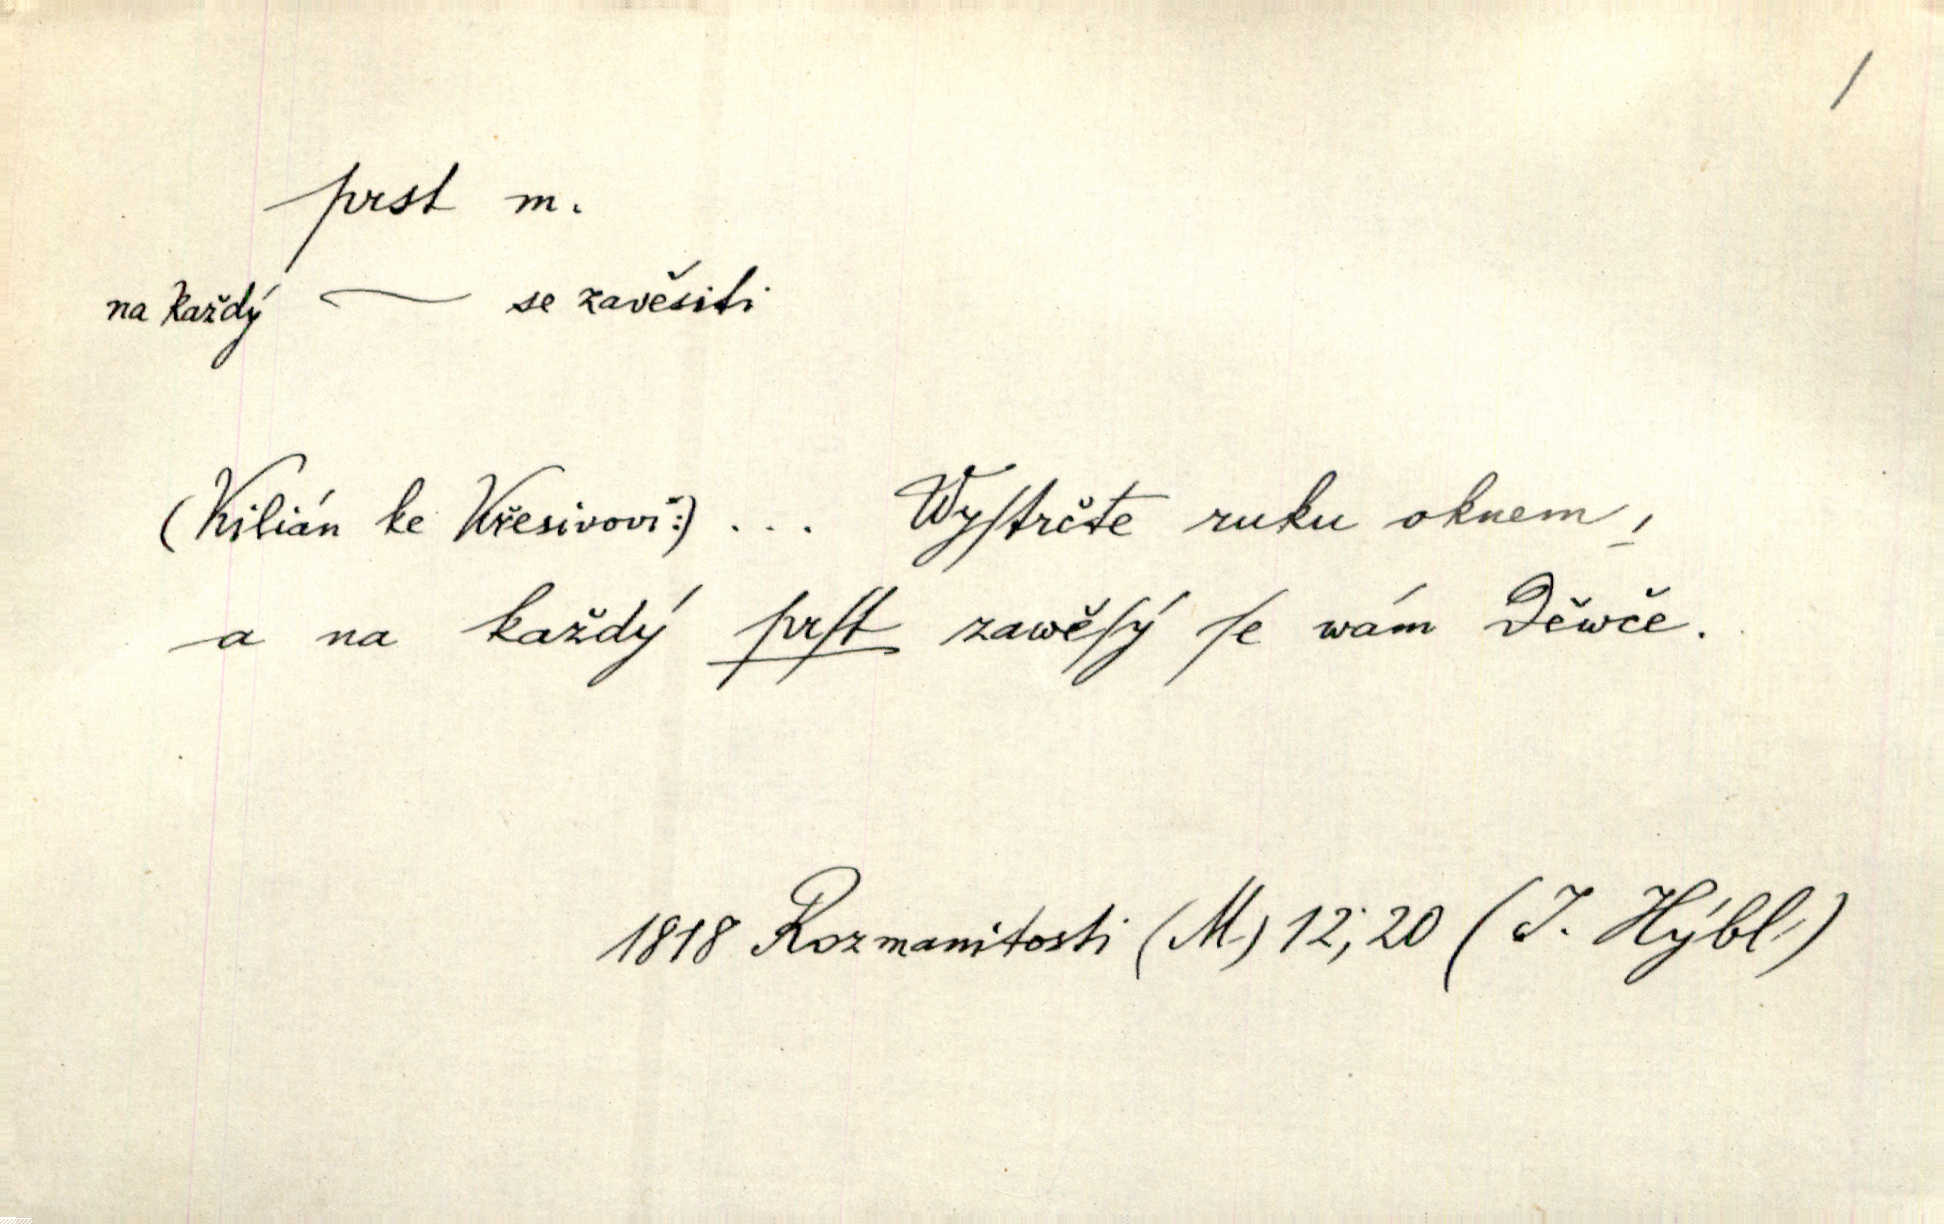 /
prst m.
na každý ~ se zavěsiti
(Kilián ke Křesivovi:) ... Wyſtrčte ruku oknem,
a na každý prſt zawěſý ſe wám Děwče.
1818 Rozmanitosti (M.) 12; 20 (J. Hýbl.)